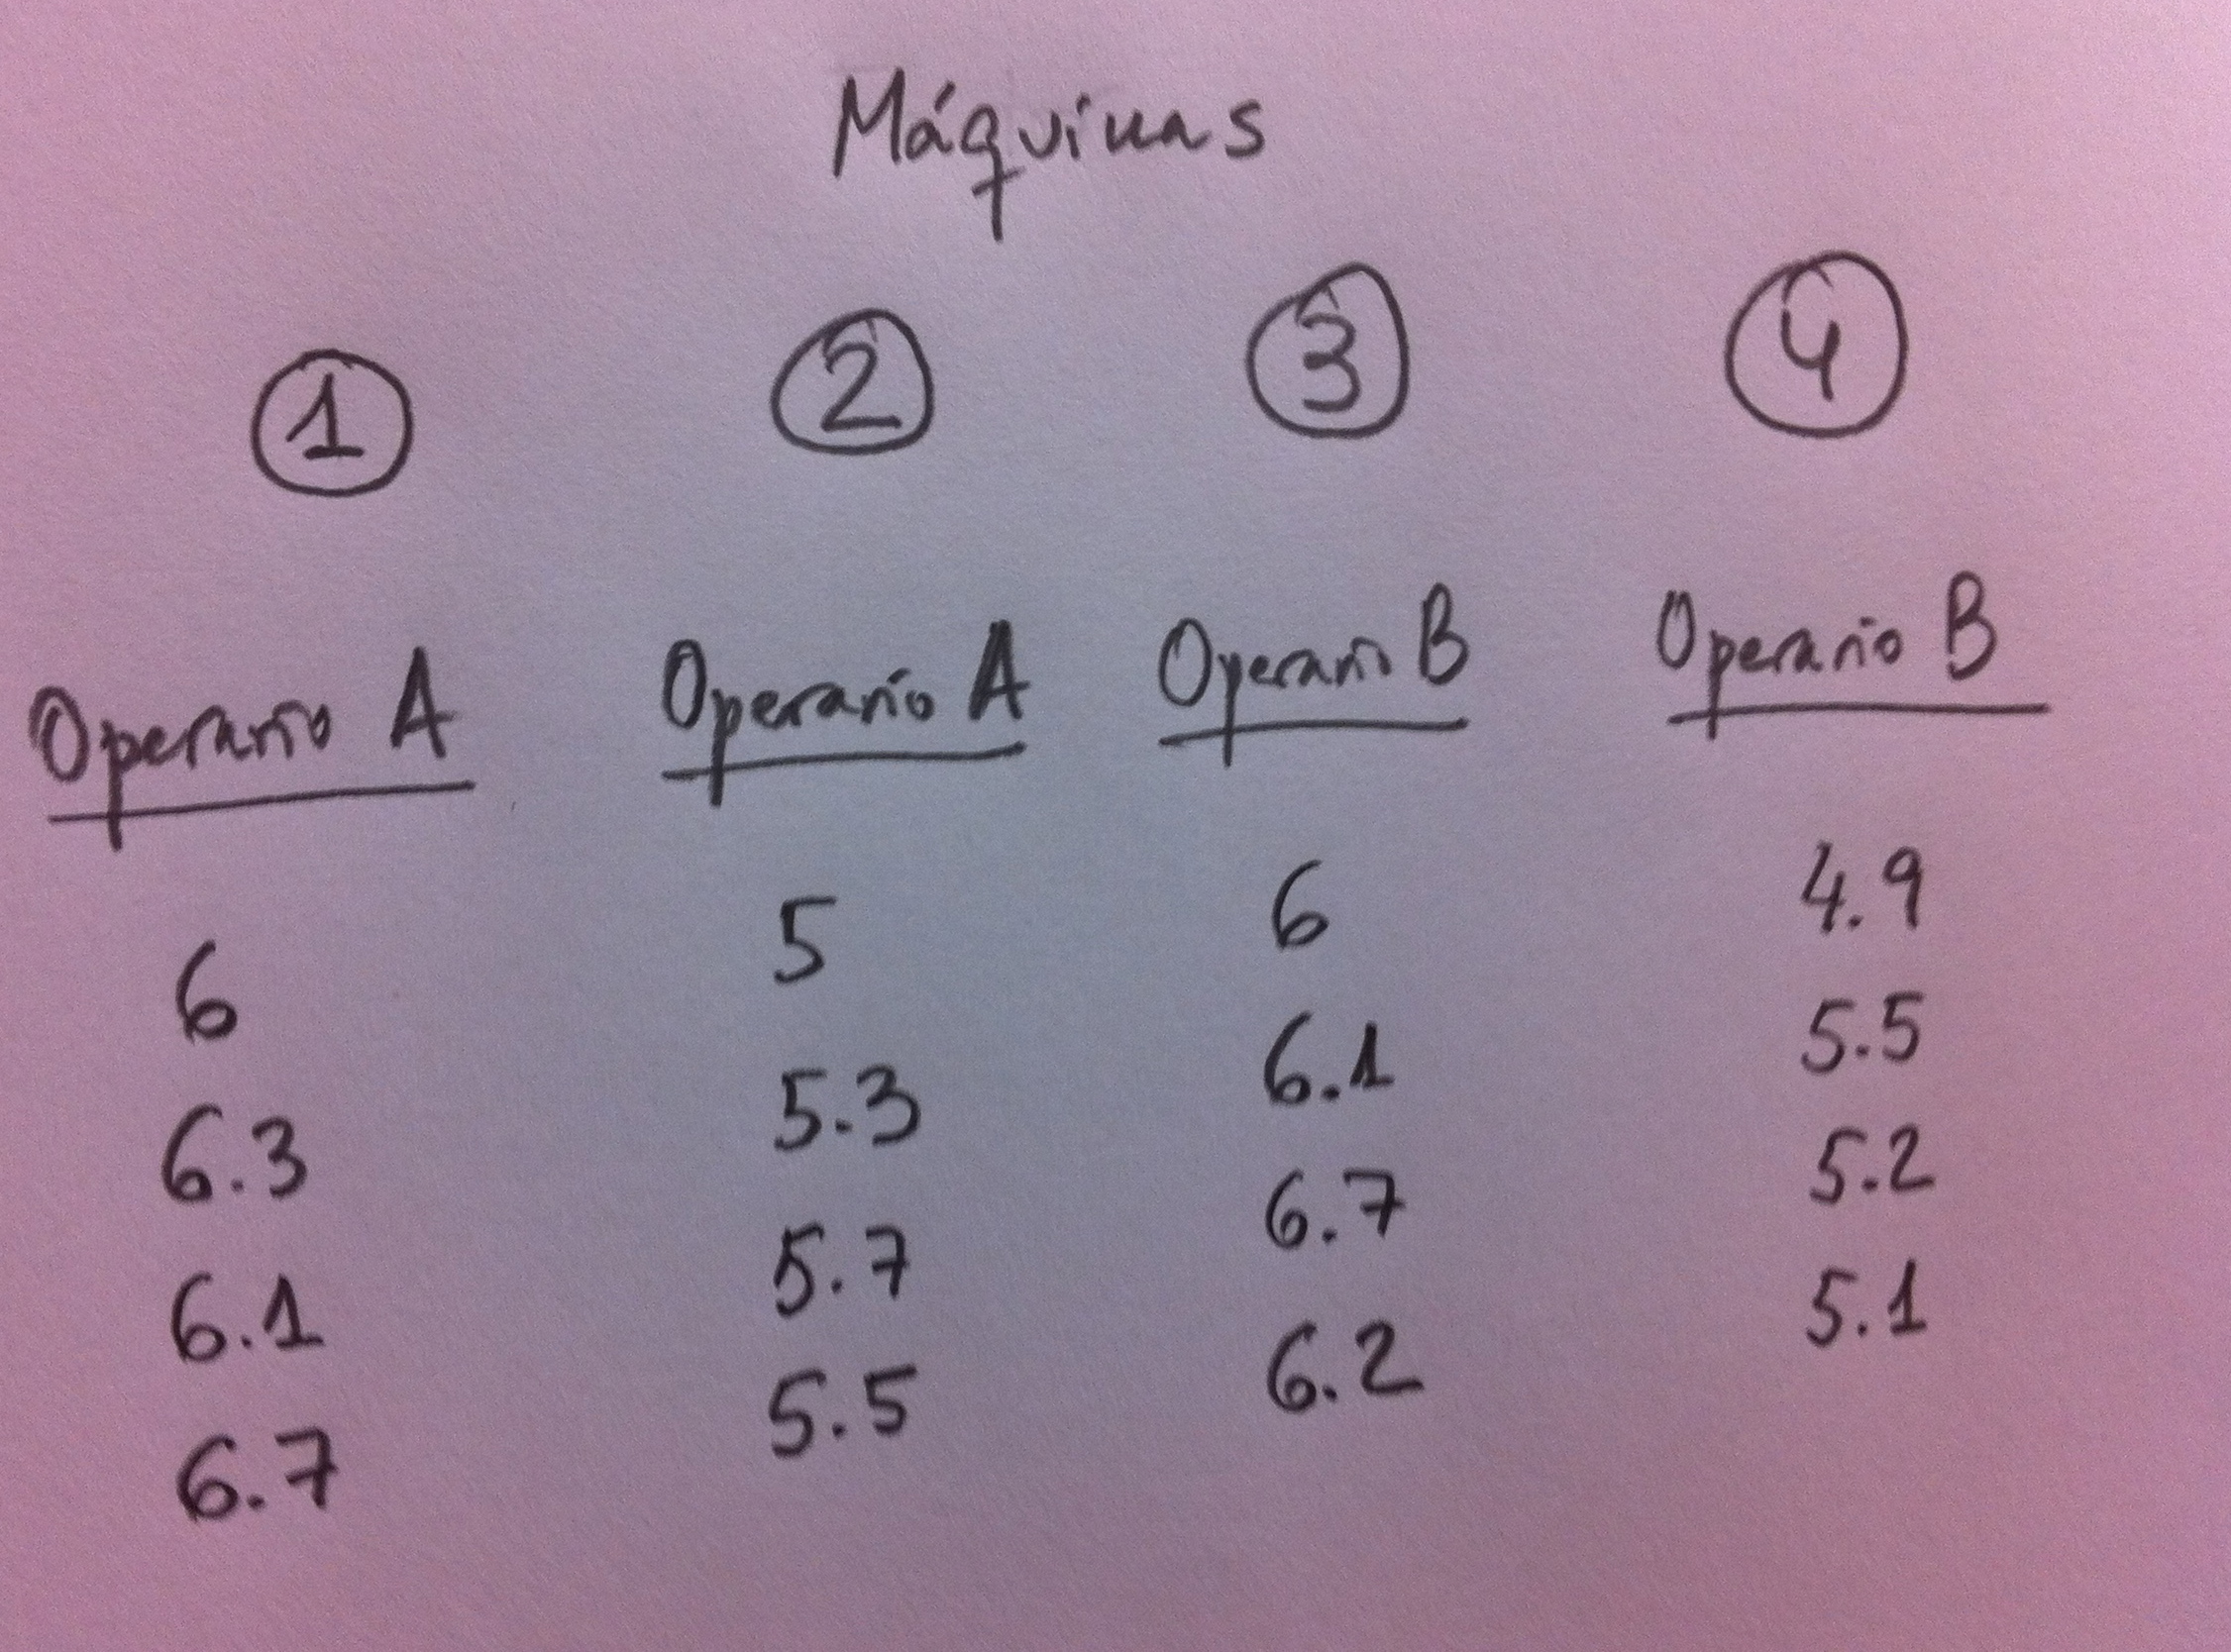 Máquinas
1 2 3 4
Operario A Operario A Operario B Operario B
6 5 6 4.9
6.3 5.3 6.1 5.5
6.1 5.7 6.7 5.2
6.7 5.5 6.2 5.1